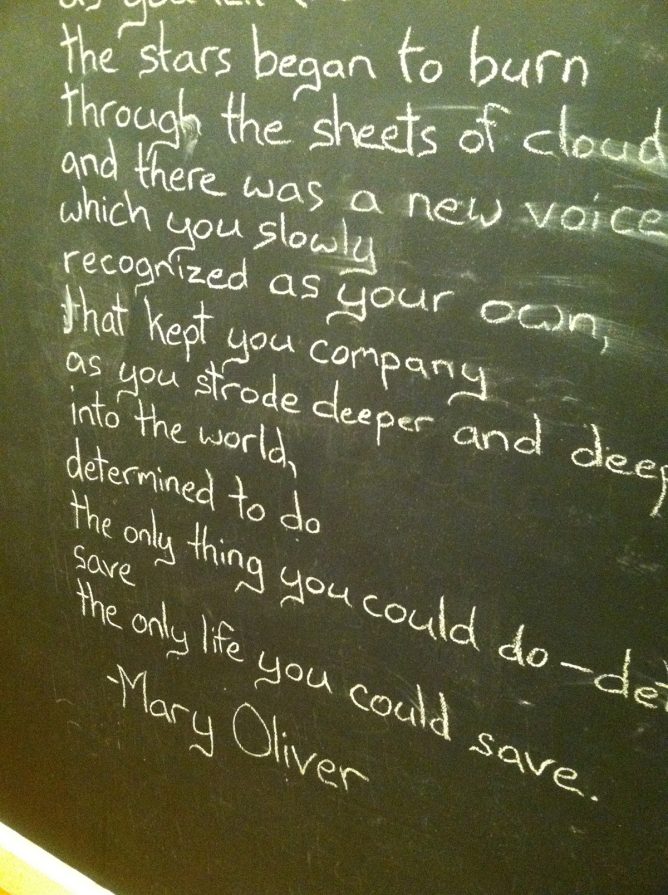 as you
the stars began to burn
through the sheets of cloud
and there was a new voice
which you slowly
recognized as your own,
that kept you company
as you strode deeper and deep
into the world,
determined to do
the only thing you could do - det
save
the only life you could save.
-Mary Oliver